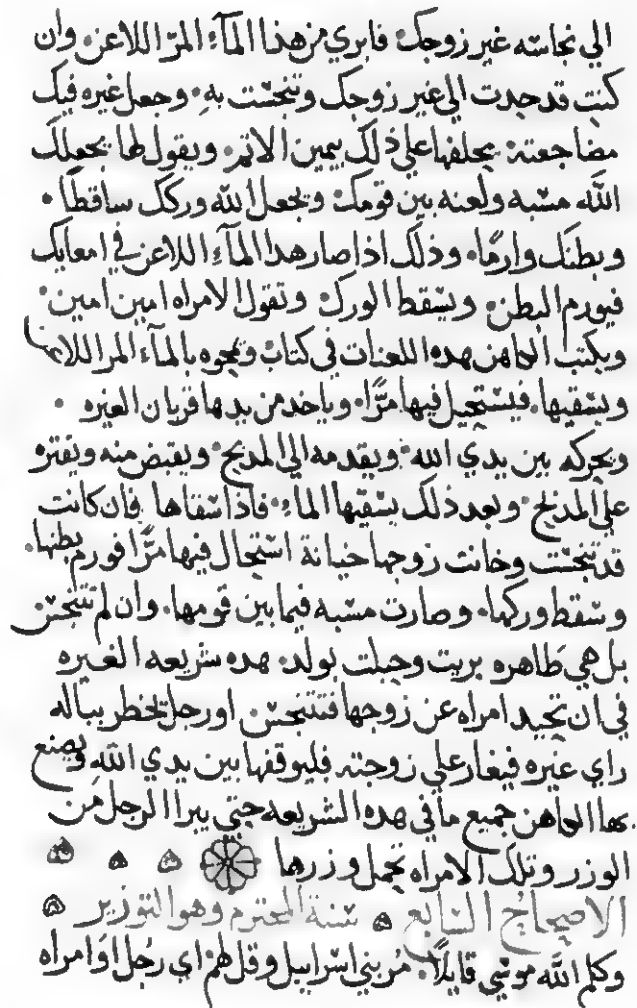 الي نجاسه غير زوجك فابري من هذا المآء المرّ اللاعن وان
كنت قد حدت الي غير زوجك وتنجست به وجعل غيره فيك
مضاجعته يحلفها علي ذلك بيمين الاثم ويقول لها يجعلك
الله مسبه ولعنه بين قومك ويجعل الله وركك ساقطًا
وبطنك وارمًا وذلك اذا صار هدا المآء اللاعن في امعايك
فيورم البطن ويسقط الورك وتقول الامراه امين امين
ويكتب الكاهن هده اللعنات في كتاب ويمحوه بالمآء المر اللاعن
ويسقيها فيستحيل فيها مرًّا وياخد من يدها قربان الغيره
ويحركه بين يدي الله ويقدمه الي المدبح ويقبض منه ويقتره
علي المدبح وبعد ذلك يسقيها المآء فاذا سقاها فان كانت
قد تنجست وخانت زوجها خيانة استحال فيها مرًّا فورم بطنها
وسقط وركها وصارت مسبه فيما بين قومها وان لم تتنجس
بل هي طاهره بريت وحبلت بولد هده شريعه الغيره
في ان تحيد امراه عن زوجها فتتنجس او رجل يخطر بباله
راي غيره فيغار علي زوجته فليوقفها بين يدي الله ويصنع
بها الكاهن جميع ما في هده الشريعه حتي يبرا الرجل من
الوزر وتلك الامراه تحمل وزرها
الاصحاح السابع سنة المحترم وهو التوزير
وكلم الله موسي قايلًا مر بني اسراييل وقل لهم اي رجل او امراه